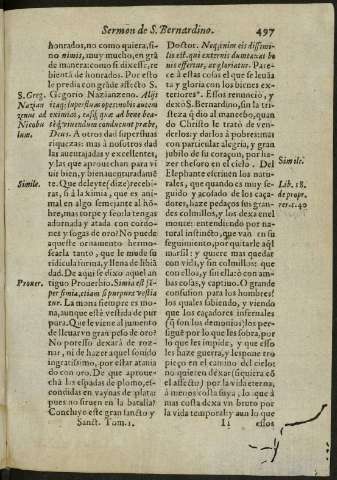 Sermon de S. Bernardino.
497
honrados, no como quiera, si-
no nimis, muy mucho, en grã
de manera: como si dixesse, re
bientã de honrados. Por esto
le predia con grãde affecto S.
Gregorio Nazianzeno.
eximios,
Deus. A otros dad superfluas
riquezas: mas à nosotros dad
las auentajadas y excellentes,
y las que aprouechan para vi
uir bien, y bienauenturadamẽ
te. Que deleyte (dize) recebi-
ras, si à la ximia, que es ani-
mal en algo semejante al hõ-
bre, mas torpe y fea: la tengas
adornada y atada con cordo-
nes y sogas de oro? No puede
aqueste ornamento hermo-
searla tanto, que le mude su
ridicula forma, y llena de libiã
dad. De aqui se dixo aquel an
tiguo Prouerbio. Simia est sẽ-
per simia, etiam si purpura vestia
tur. La mona siempre es mo-
na, aunque estè vestida de pur
pura. Que le viene al jumento
de lleuar vn gran peso de oro?
No por esso dexarà de roz-
nar, ni de hazer aquel sonido
ingratissimo, por estar atauia
do con oro. De que aproue-
chã las espadas de plomo, es-
condidas en vaynas de plata?
pues no siruen en la batalla?
Concluye este gran sancto y
Sanct. Tom. 1.
S. Greg.
Nazian
zenus ad
Nicobu
lum.
Simile.
Prouer.
Doctor. Neq; enim eis dissimi-
lis est, qui externis dumtaxat bo
nis effertur, ac gloriatur. Pare-
ce à estas cosas el que se leuãta
y gloria con los bienes ex-
teriores. Essos renunciò, y
dexò S. Bernardino, sin la tri-
steza q̃ dio al mancebo, quan
do Christo le tratò de ven-
derlos: y darlos à pobres: mas
con particular alegria, y gran
jubilo de su coraçon, por ha-
zer thesoro en el cielo. Del
Elephante escriuen los natu-
rales, que quando es muy se-
guido y acosado de los caça-
dores, haze pedaços sus gran-
des colmillos, y los dexa en el
monte: entendiendo por na-
tural instincto, que vàn en su
seguimiento, por quitarle aq̃l
marfil: y quiere mas quedar
con vida, y sin colmillos: que
con ellos, y sin ella: ò con am-
bas cosas, y captiuo. O grande
confusion para los hombres!
los quales sabiendo, y viendo
que los caçadores infernales
(q̃ son los demonios) los per-
sigue por lo que les sobra, por
lo que les impide, y que esso
les haze guerra, y les pone tro
pieço en el camino del cielo:
no quieren dexar (siquiera cõ
el affecto) por la vida eterna,
à menos costa suya, lo que à
mas costa dexa vn bruto por
la vida temporal: y aun lo que
Ii
essos
Simile.
Lib. 18.
de prope.
rer. c. 40